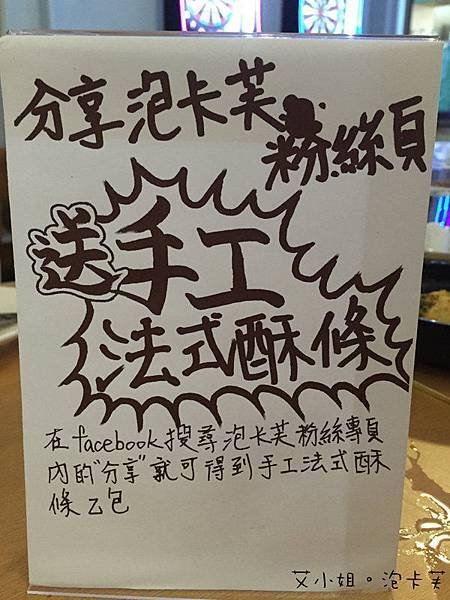 分享泡卡芙
粉絲頁
送手工
法式酥條
在facebook搜尋泡卡芙粉絲專頁
內的"分享"就可得到手工法式酥
條乙包
艾小姐。泡卡芙